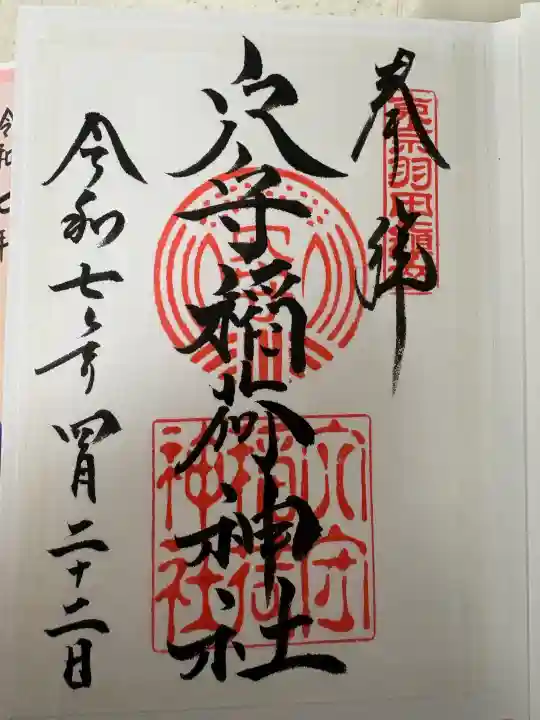 奉拝
東京羽田鎮守
穴守稲荷神社
穴守
稲荷
神社
令和七年四月二十二日
令和七年